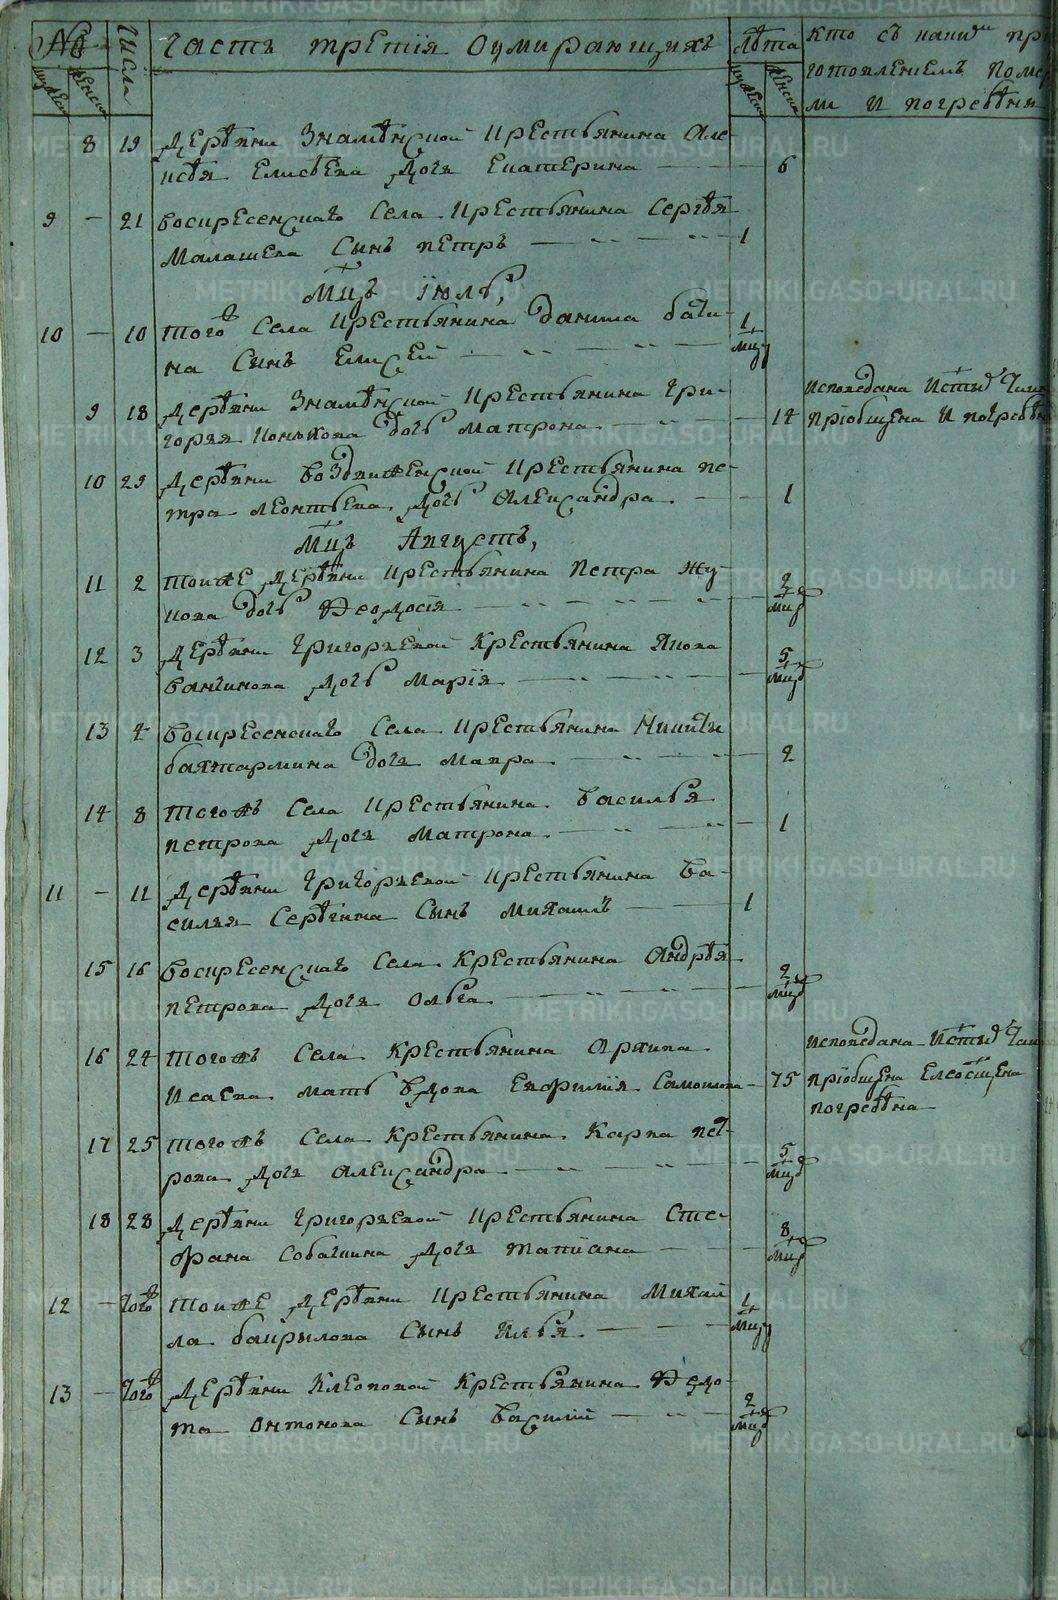 № Числа Часть третiя Оумирающихъ Лѣта Кто съ каки
готовленiемъ поме
мужеска женска мужеска женска ли и погребѣни
8 19 Деревни Знаменской Крестьянина Але
ксѣя Елисѣева дочь Екатерина 6
9 - 21 Воскресенскаго Села Крестьянина Сергѣя
Малашева Сынъ петръ 1
Мцъ Iюль,
10 - 10 того Села Крестьянина данила бачи-
на Сынъ Елисей 1 мцъ
Исповѣдана
9 18 Деревни Знаменской Крестьянина Гри-
горья Конькова дочь матрона 14 прiобщена и погребѣ
10 29 Деревни Воздвиженской Крестьянина пе-
тра леонтьева дочь Александра 1
Мцъ Августъ,
11 2 тойже деревни крестьянина Петра Жу-
кова дочь Феодосiя 2 мца
12 3 Деревни Григорьевой Крестьянина Якова
Ванчинова дочь Марiя 5 мцъ
13 4 Воскресенскаго Села Крестьянина Никиты
бахтармина дочь мавра 2
14 8 тогожъ Села Крестьянина Василья
петрова дочь Матрона 1
11 - 11 Деревни Григорьевой Крестьянина Ва-
силья Серѣгина Сынъ Михаилъ 1
15 16 Воскресенскаго Села Крестьянина Андрѣя
петрова дочь Ольга 2 мца
16 24 тогожъ Села Крестьянина Архипа Исповѣдана
Исаева мать вдова Евфимiя Самоилова 75 прiобщена Елеосщена
погребѣна
17 25 тогожъ Села Крестьянина Карпа пет-
рова дочь Александра 5 мцъ
18 28 Деревни Григорьевой Крестьянина Сте-
фана Собакина дочь татiана 8 мцъ
12 - тогож тойже деревни Крестьянина Михай
ла бакрылова Сынъ Илья 1 мцъ
13 - тогож Деревни Клеоповой Крестьянина Федо-
та Антонова Сынъ Василiй 2 мца
METRIKI.GASO-URAL.RU